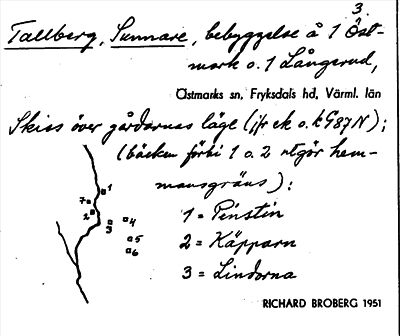 3.
Tallberg, Sunnare, bebyggelse å 1 Öst-
mark o. 1 Långerud,
Östmarks sn, Fryksdals hd, Värml. län
Skiss över gårdarnas läge (jfr ek o. k G87N);
(bäcken förbi 1 o. 2 utgör hem-
mansgräns):
1
7
2
3
4
5
6
1 = Peinstin
2 = Käpparn
3 = Lindorna
RICHARD BROBERG 1951